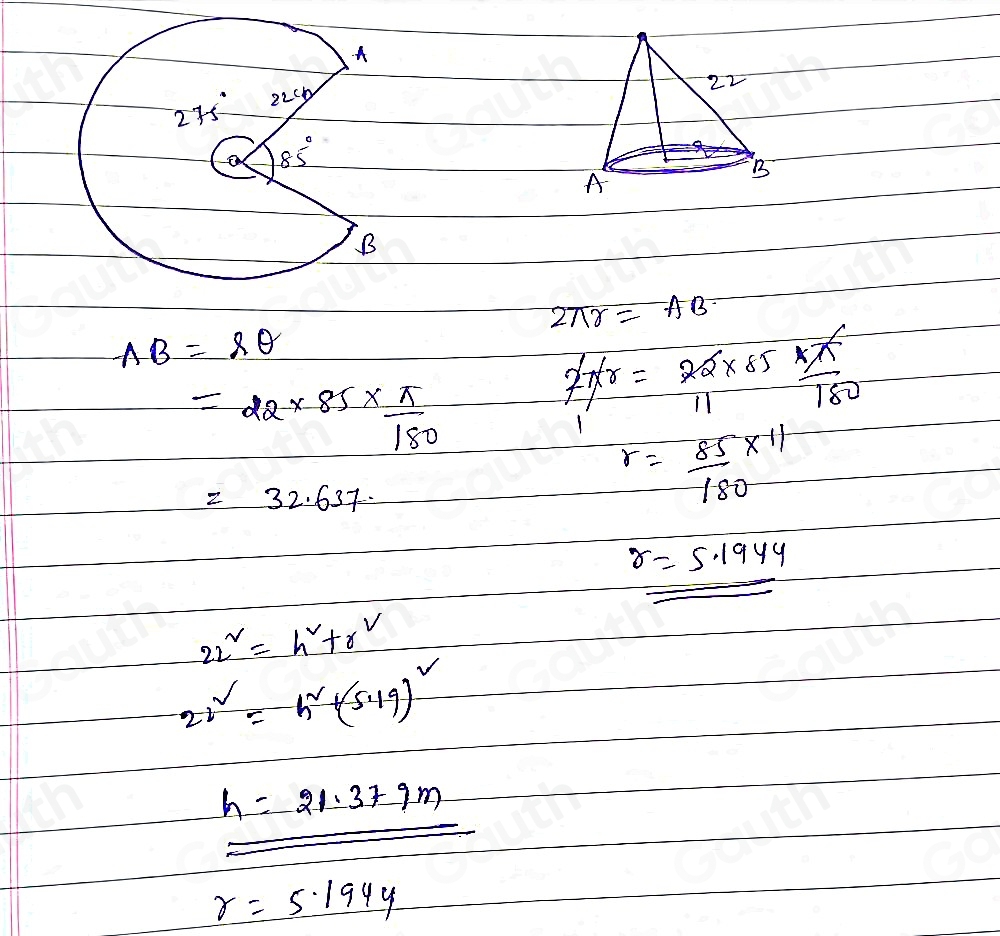 A
275°
22cm
85°
B
22
r
A
B
AB = rθ
= 22 × 85 × π/180
= 32.637.
2πr = AB
2πr = 22 × 85 × π/180
1 11
r = 85/180 × 11
r = 5.1944
22² = h² + r²
22² = h² + (5.19)²
h = 21.379m
r = 5.1944
Gauth